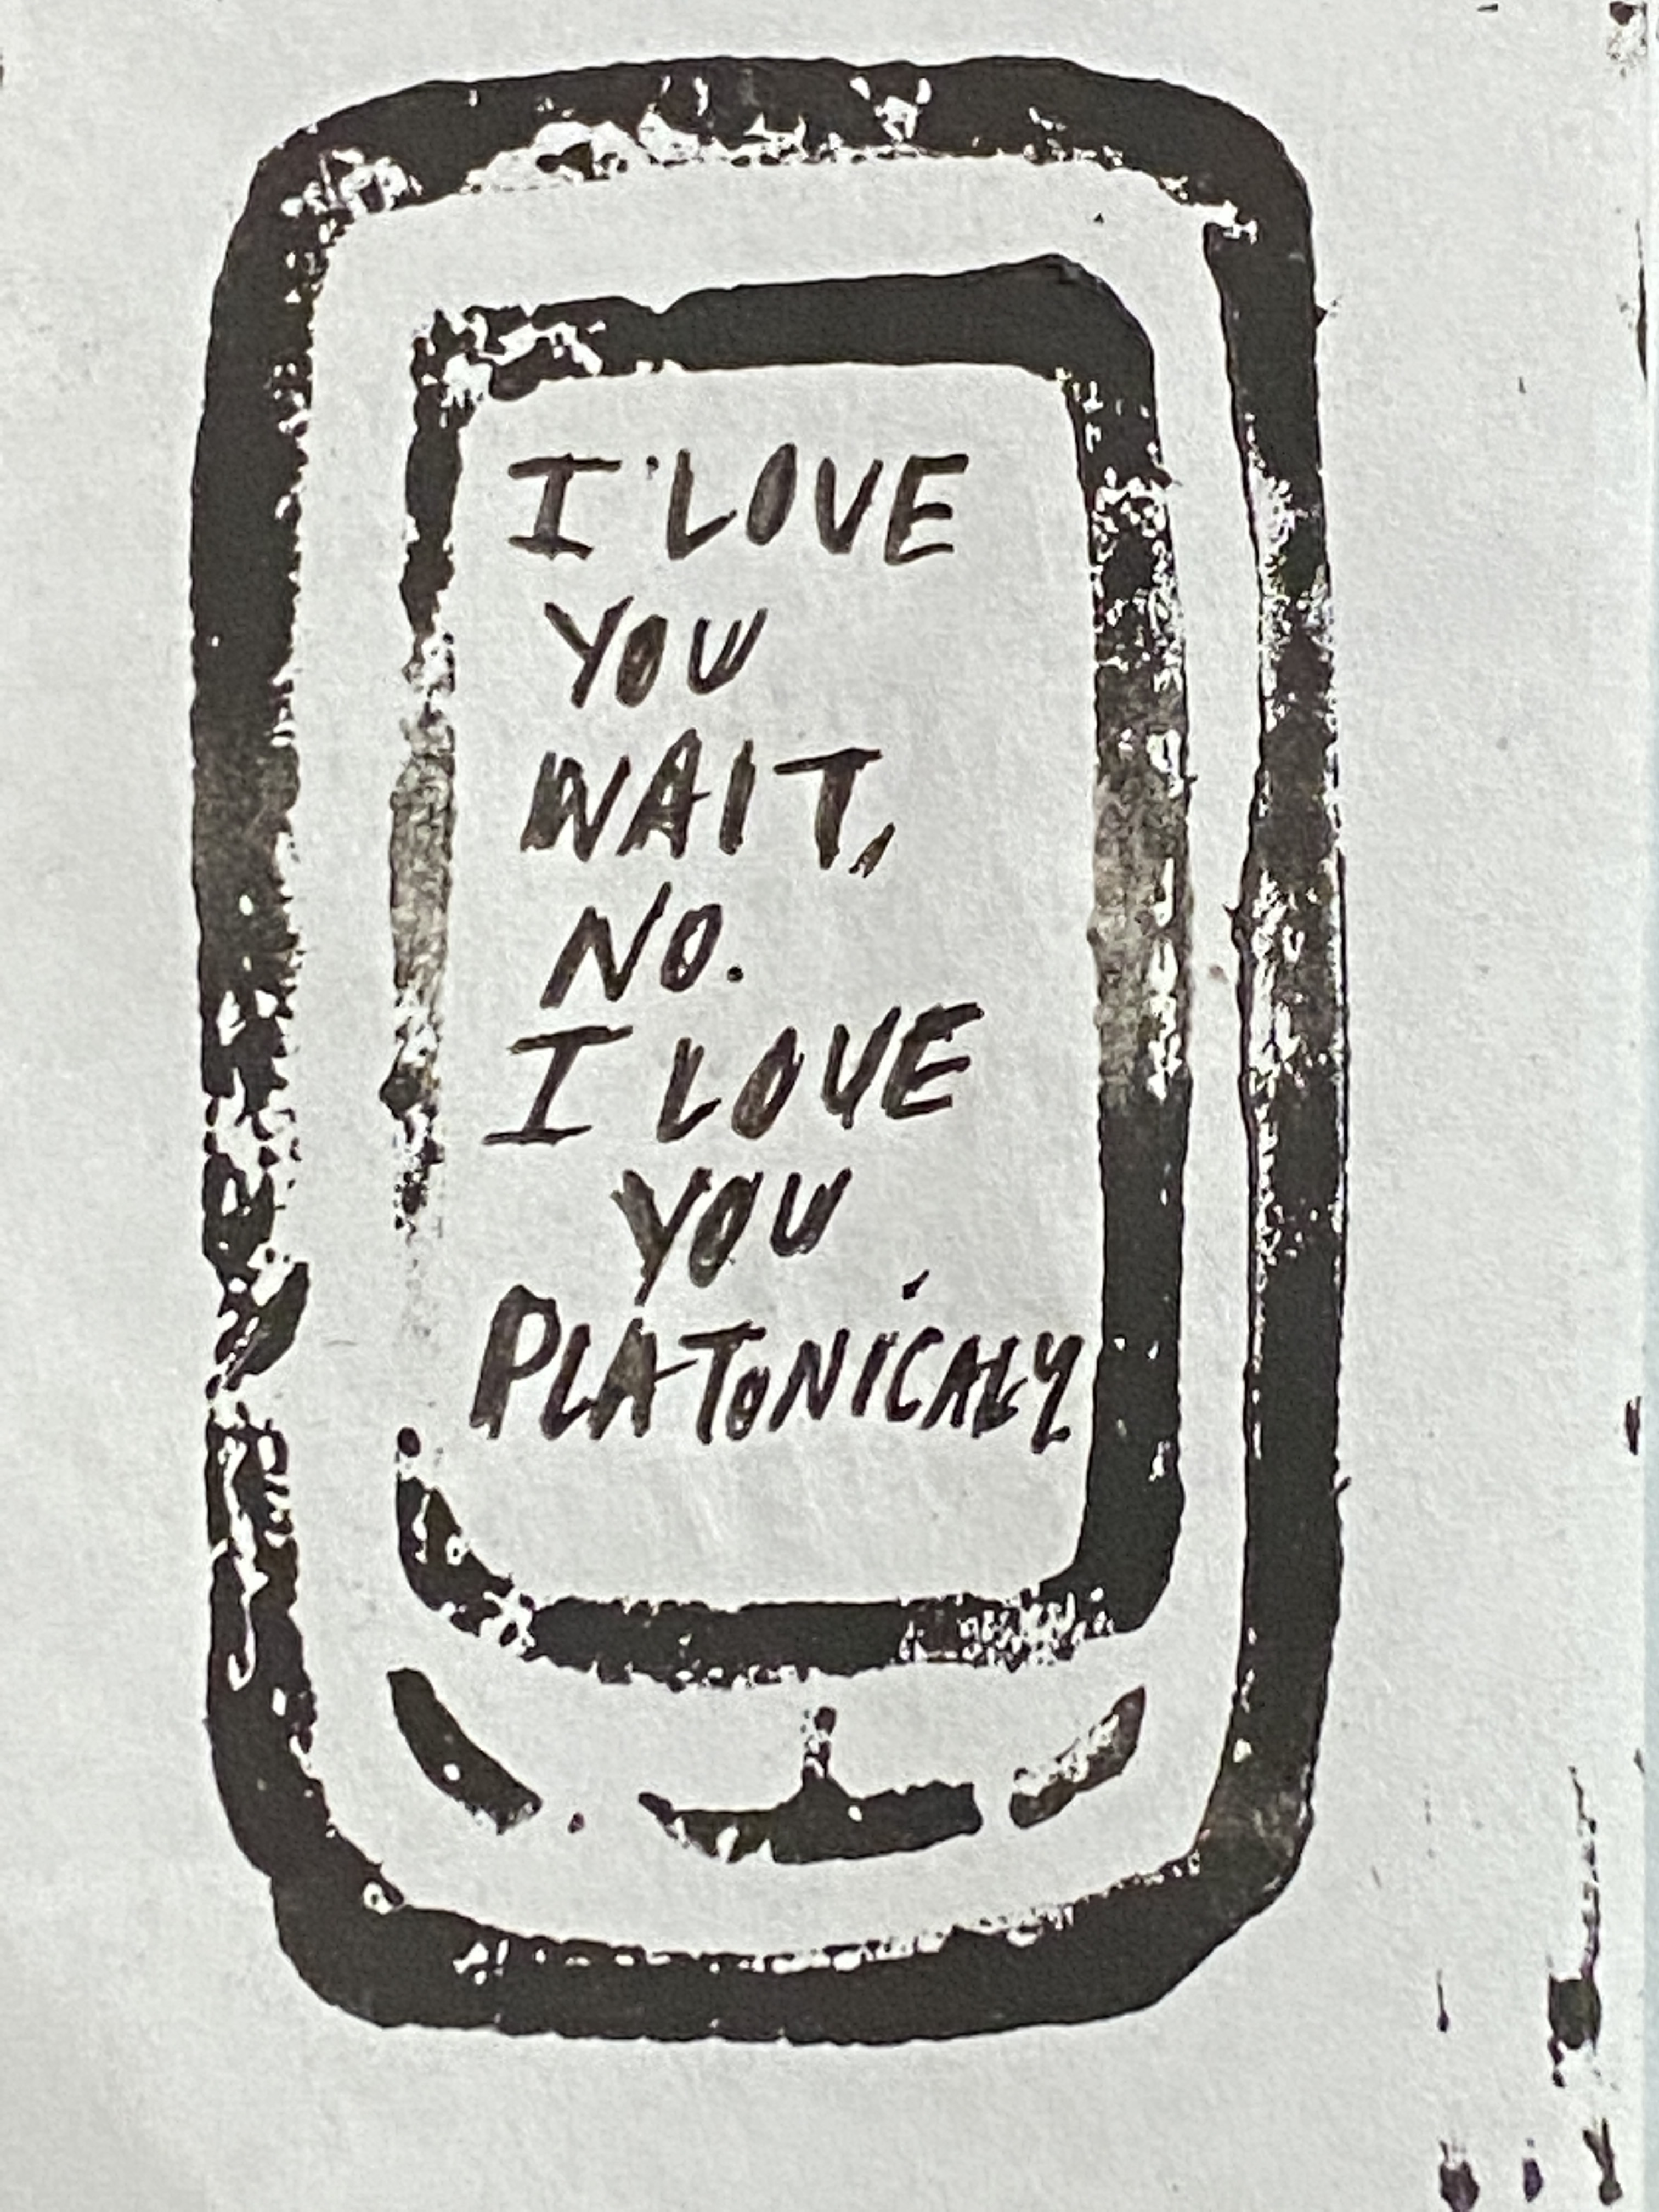 I LOVE
YOU
WAIT,
NO.
I LOVE
YOU
PLATONICALY